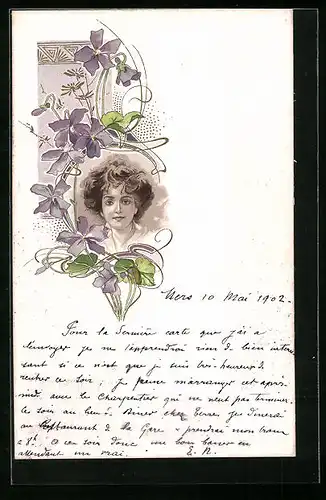 Mers 10 Mai 1902.
Pour la dernière carte que j'ai à
t'envoyer je ne t'apprendrai rien de bien intéres
sant si ce n'est que je suis très-heureux de
rentrer ce soir. je pense m'arranger cet après
midi avec le Charpentier qui ne veut pas terminer
le soir au lieu de dîner chez je dînerai
au Restaurant de la Gare & prendrai mon train
à 8h. À ce soir donc un bon baiser en
attendant un vrai. E. R.